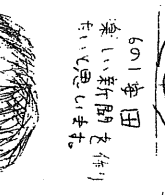 6の1
楽しい新聞を作り
たいと思います。